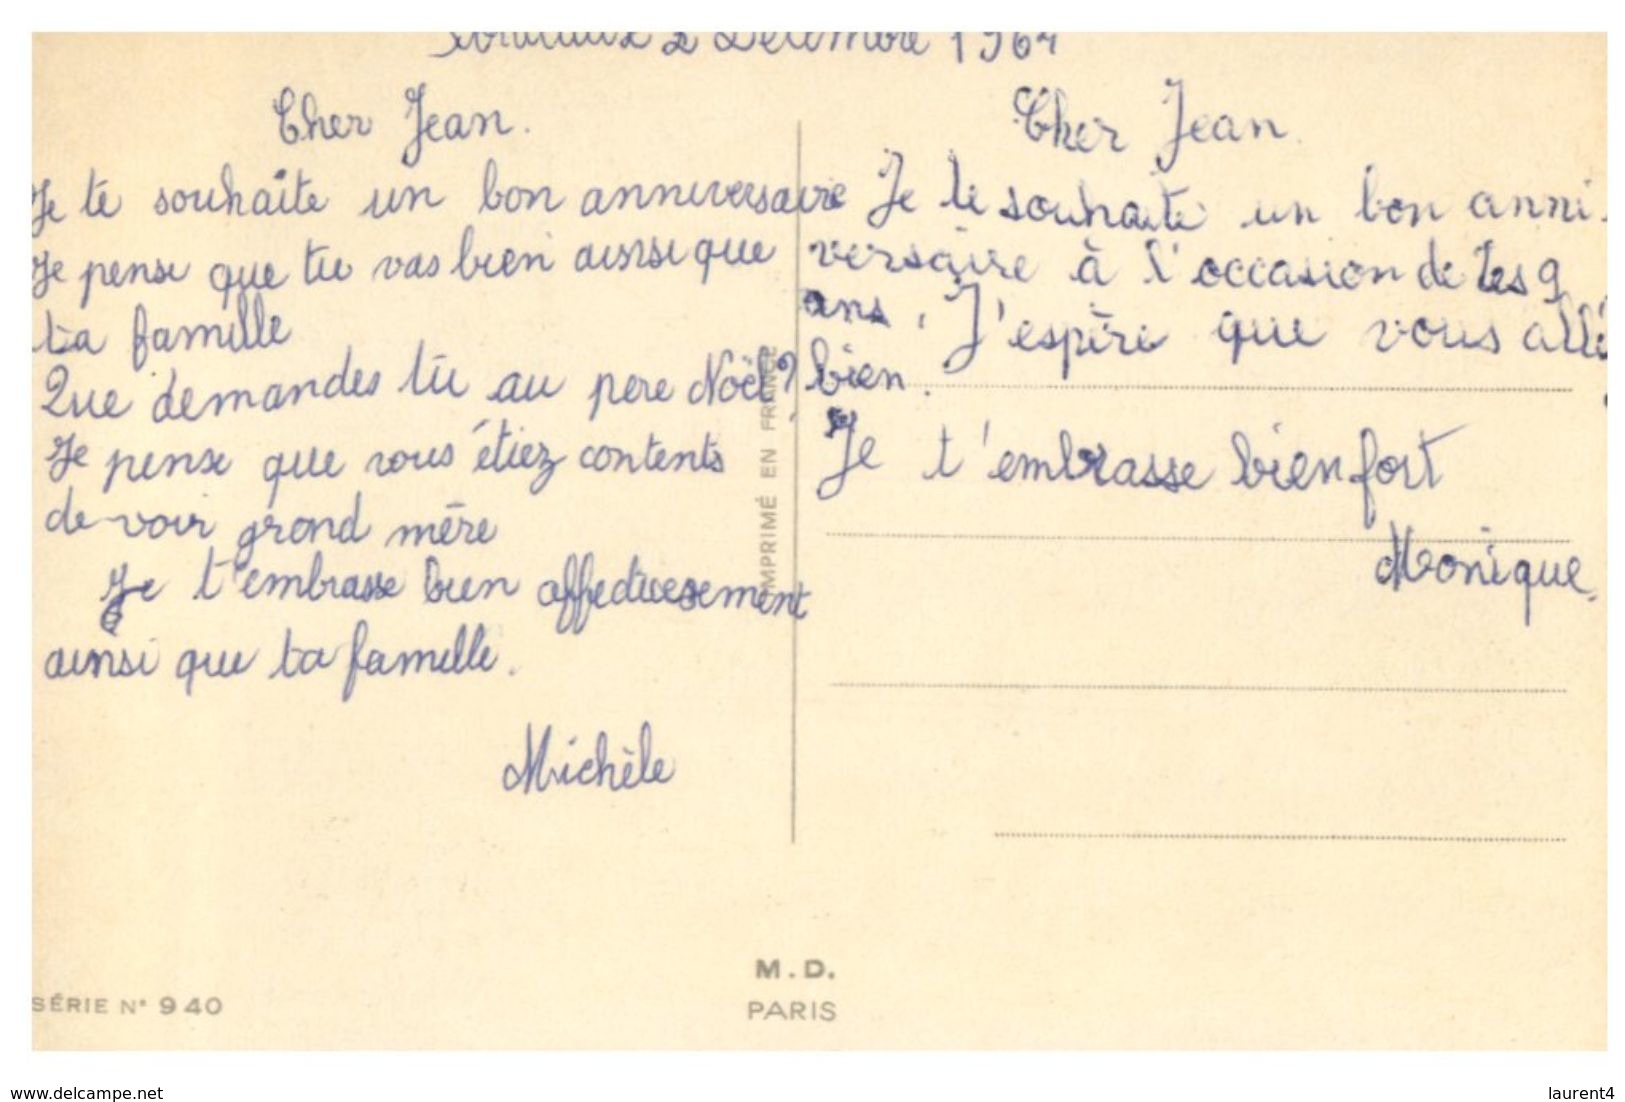 2 Décembre 1964
Cher Jean.
Je te souhaite un bon anniversaire
Je pense que tu vas bien ainsi que
ta famille
Que demandes tu au pere Noël?
Je pense que vous étiez contents
de voir grand mère
Je t'embrasse bien affectuesement
ainsi que ta famille.
Michèle
Cher Jean.
Je te souhaite un bon anni-
versaire à l'occasion de tes 9
ans. J'espère que vous allé
bien.
Je t'embrasse bien fort
Monique.
IMPRIMÉ EN FRANCE
M.D.
PARIS
SÉRIE N° 940
www.delcampe.net
laurent4